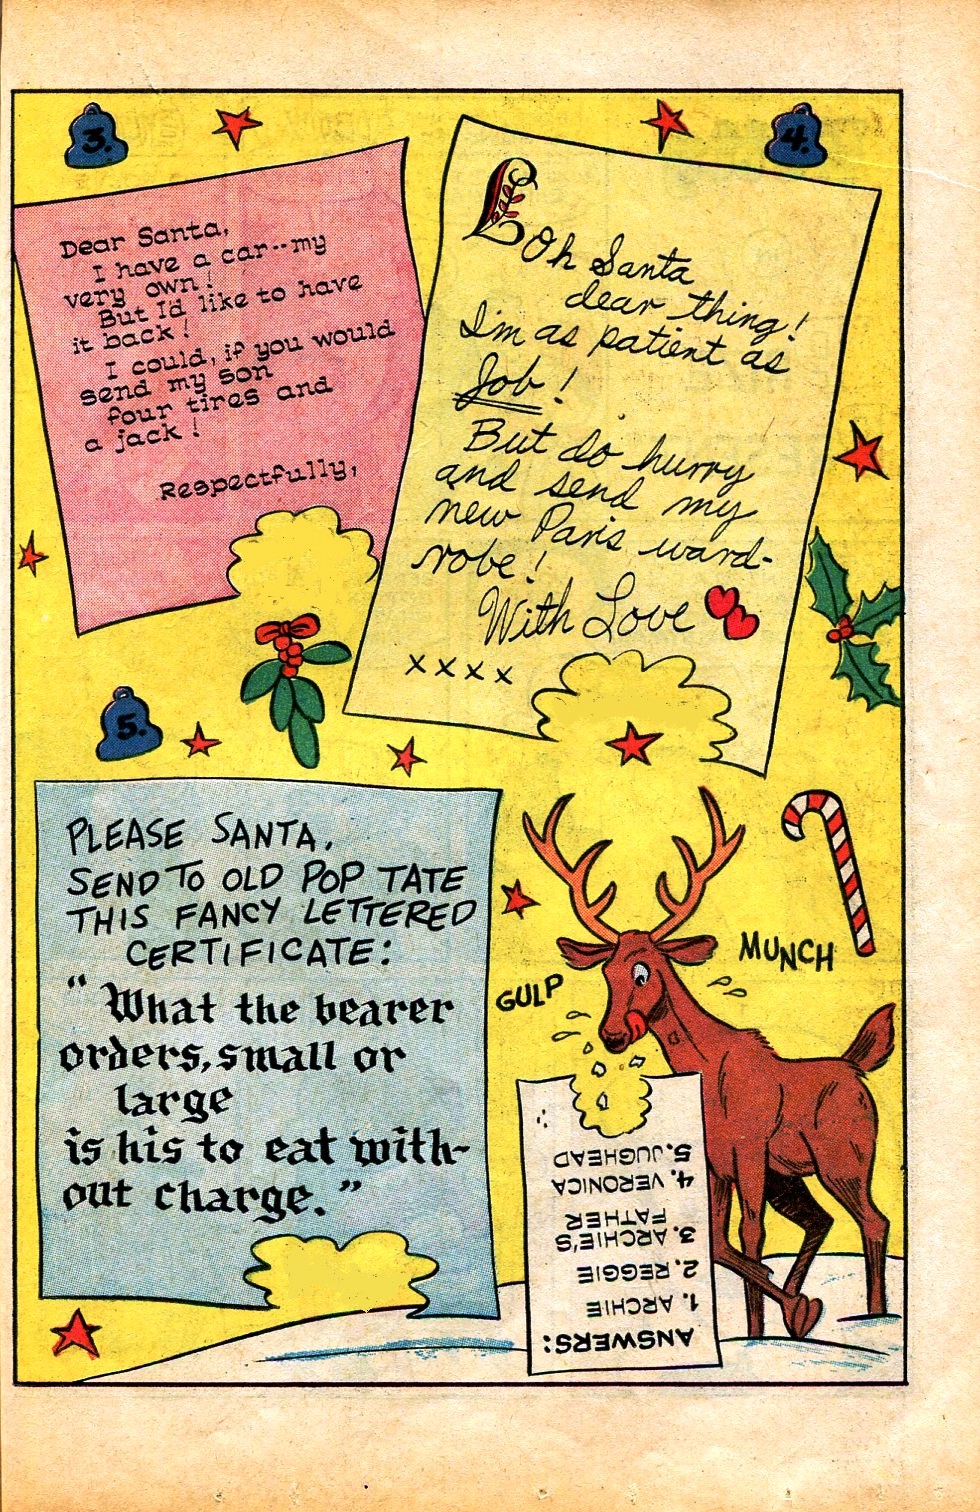 3.
Dear Santa,
I have a car--my
very own!
But I'd like to have
it back!
I could, if you would
send my son
four tires and
a jack!
Respectfully,
4.
L
Oh Santa
dear thing!
I'm as patient as
Job!
But do hurry
and send my
new Paris ward-
robe!
With Love
xxxx
5.
PLEASE SANTA,
SEND TO OLD POP TATE
THIS FANCY LETTERED
CERTIFICATE:
"What the bearer
orders, small or
large
is his to eat with-
out charge."
GULP
MUNCH
ANSWERS:
1. ARCHIE
2. REGGIE
3. ARCHIE'S
FATHER
4. VERONICA
5. JUGHEAD